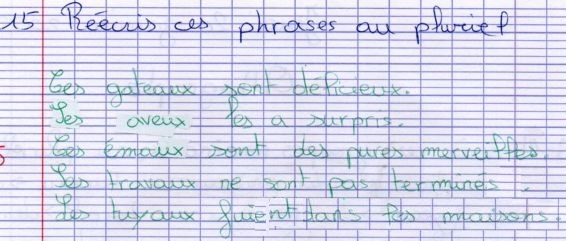 15 Réécris ces phrases au pluriel
Ces gateaux sont délicieux.
Ses aveux les a surpris.
Ces émaux sont des pures merveilles.
Ses travaux ne sont pas terminés.
Les tuyaux fuient dans les maisons.